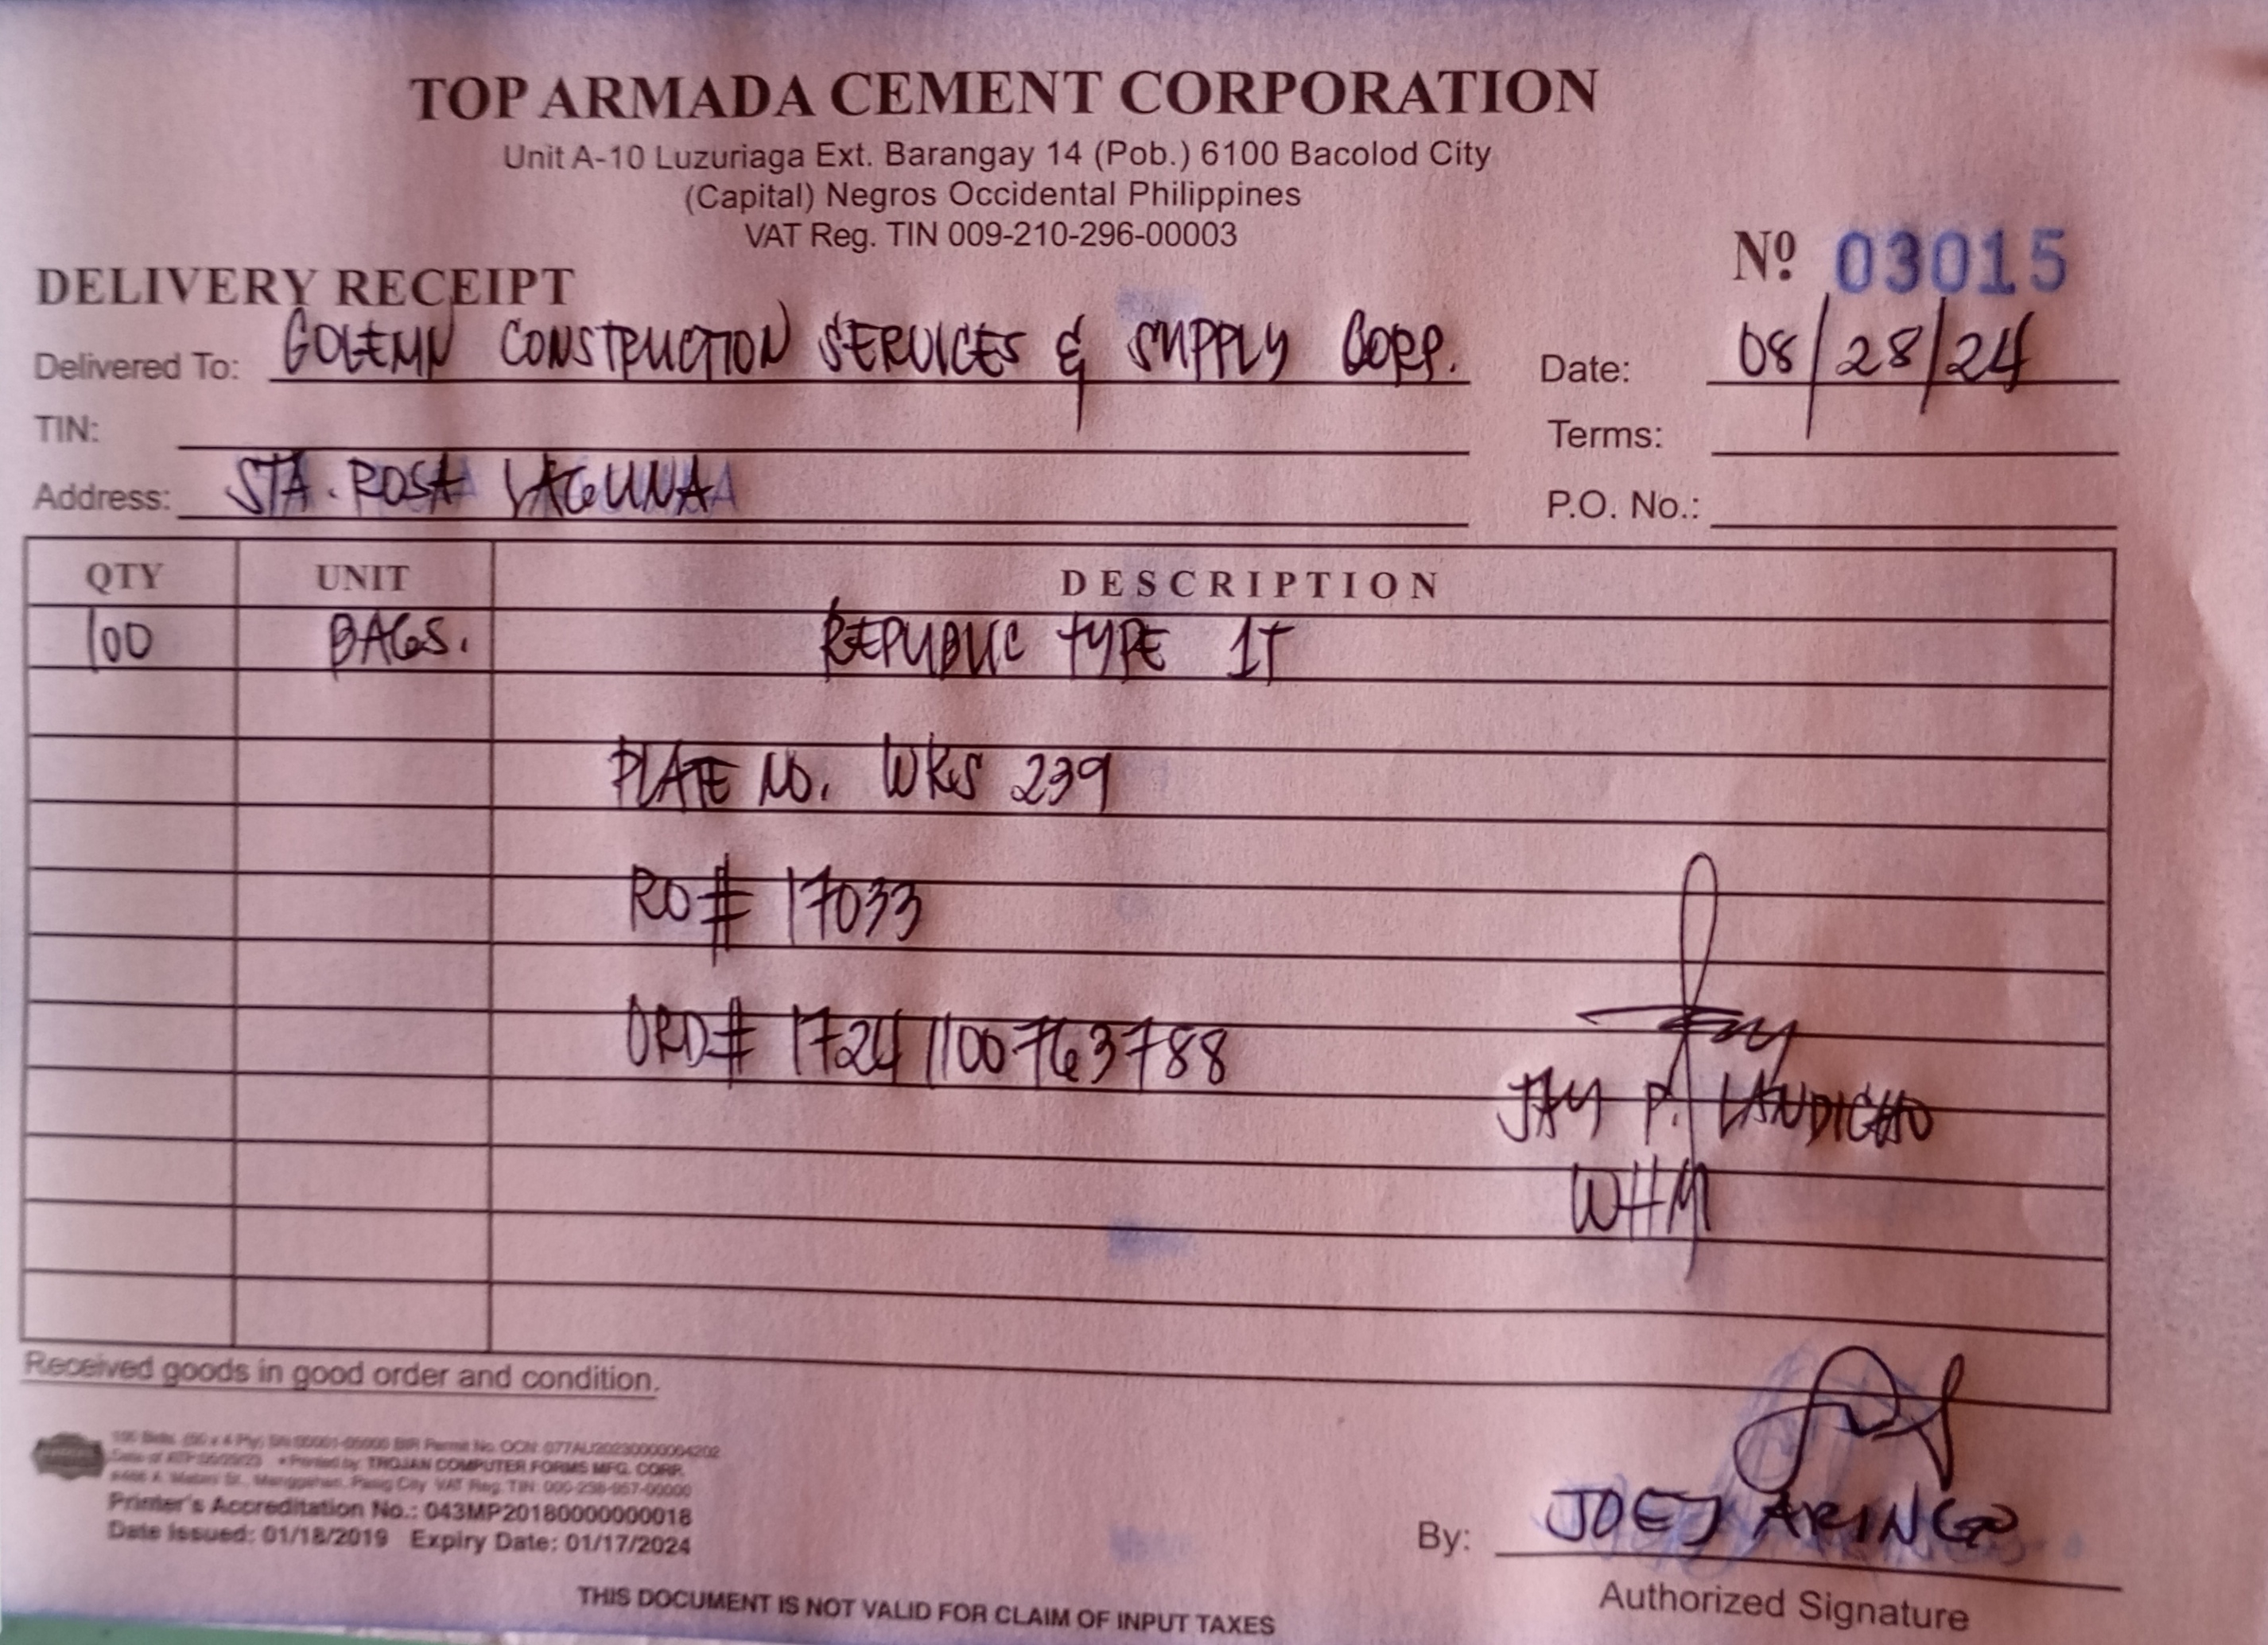 TOP ARMADA CEMENT CORPORATION
Unit A-10 Luzuriaga Ext. Barangay 14 (Pob.) 6100 Bacolod City
(Capital) Negros Occidental Philippines
VAT Reg. TIN 009-210-296-00003
Nº 03015
DELIVERY RECEIPT
Delivered To: GOLEMN CONSTRUCTION SERVICES & SUPPLY CORP. Date: 08/28/24
TIN: Terms:
Address: STA. ROSA LAGUNA P.O. No.:
QTY UNIT DESCRIPTION
100 BAGS. REPUBLIC TYPE 1T
PLATE NO. WKS 239
RO# 17033
ORD# 17241100763788
JAY P. LANDICHO
WHM
Received goods in good order and condition.
100 Bklts. (50 x 4 Ply) SN 00001-05000 BIR Permit No. OCN: 077AU20230000004202
Printed by: TROJAN COMPUTER FORMS MFG. CORP.
Manggahan, Pasig City VAT Reg. TIN:
Printer's Accreditation No.: 043MP20180000000018
Date Issued: 01/18/2019 Expiry Date: 01/17/2024
By: JOEJ ARINGO
Authorized Signature
THIS DOCUMENT IS NOT VALID FOR CLAIM OF INPUT TAXES